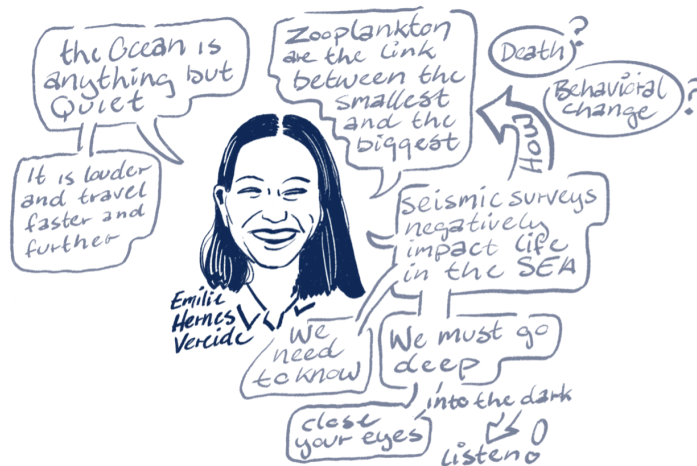 the Ocean is
anything but
Quiet
It is louder
and travel
faster and
further
Zooplankton
are the link
between the
smallest
and the
biggest
Death?
Behavioral
change?
How
Seismic surveys
negatively
impact life
in the SEA
Emilie
Hernes
Vereide
We
need
to know
We must go
deep
into the dark
close
your eyes
Listen!